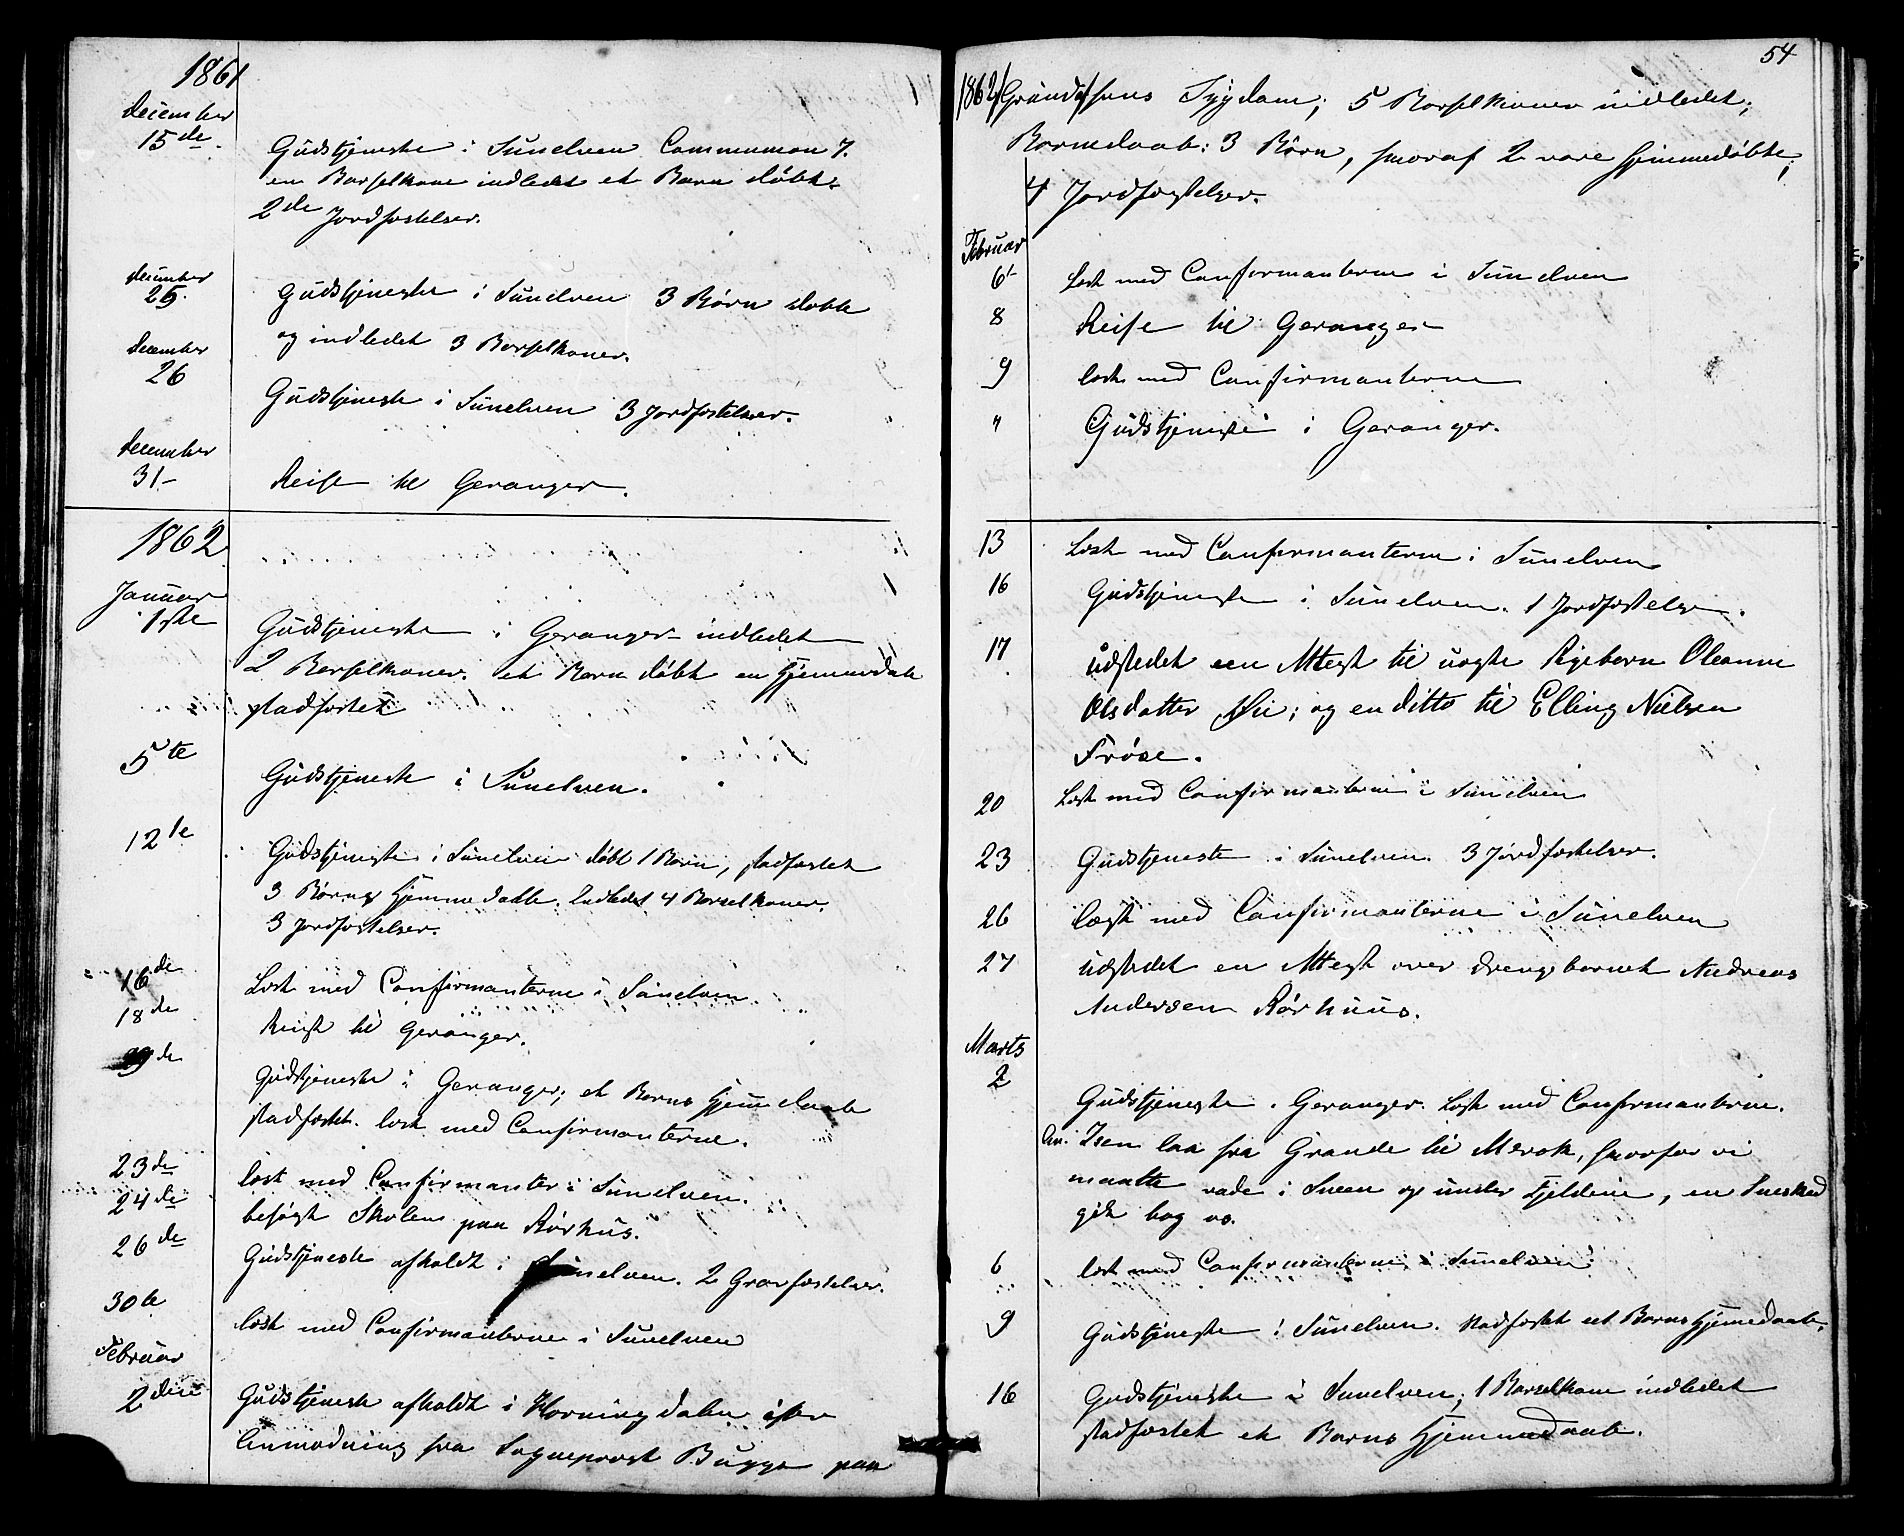 1861
December
15de Gudstjeneste i Sunelven Communion 7.
en Barselkone indledet et Barn døbt.
2de Jordfæstelser.
December
25. Gudstjeneste i Sunelven 3 Børn døbte
og indledet 3 Barselkoner.
December
26 Gudstjeneste i Sunelven 3 Jordfæstelser.
December
31- Reise til Geranger.
1862
Januar
1ste Gudstjeneste i Geranger indledet
2 Barselkoner. et Barn døbt en Hjemmedaab
stadfæstet
5te Gudstjeneste i Sunelven.
12te Gudstjeneste i Sunelven døbt 1 Barn, stadfæstet
3 Børns Hjemmedaab. Indledet 4 Barselkoner.
3 Jordfæstelser.
16de Læst med Confirmanterne i Sunelven
18de Reist til Geranger.
19de Gudstjeneste i Geranger; et Barns Hjemdaab
stadfæstet. læst med Confirmanterne.
23de læst med Confirmanter i Sunelven.
24de besøgt Skolen paa Rørhus.
26de Gudstjeneste afholdt i Sunelven. 2 Gravfæstelser.
30te læst med Confirmanterne i Sunelven
Februar
2den Gudstjeneste afholdt i Horningdalen efter
Anmodning fra Sogneprest Bugge paa
54
1862 Grund af hans Sygdom; 5 Barselkoner indledet;
Barnedaab: 3 Børn, hvoraf 2 vare hjemmedøbte;
4 Jordfæstelser.
Februar
6- Læst med Confirmanterne i Sunelven
8 Reise til Geranger
9 læst med Confirmanterne
" Gudstjeneste i Geranger.
13 Læst med Confirmanterne i Sunelven
16 Gudstjeneste i Sunelven. 1 Jordfæstelse.
17 udstedet een Attest til uægte Pigebarn Oleanne
Olsdatter Øie; og en ditto til Elling Nielsen
Frøse.
20 Læst med Confirmanterne i Sunelven
23 Gudstjeneste i Sunelven. 3 Jordfæstelser.
26 læst med Confirmanterne i Sunelven
27 udstedet en Attest over Drengebarnet Andreas
Andersen Rørhuus.
Marts
2 Gudstjeneste i Geranger. Læst med Confirmanterne.
An. Isen laa fra Grande til Merok, hvorfor vi
maatte vade i Sneen op under Fjeldene, en Sneskred
gik bag os.
6 læst med Confirmanterne i Sunelven
9 Gudstjeneste i Sunelven. stadfæstet eet Barns Hjemedaab.
16 Gudstjeneste i Sunelven; 1 Barselkone indledet
stadfæstet et Barns Hjemmedaab.